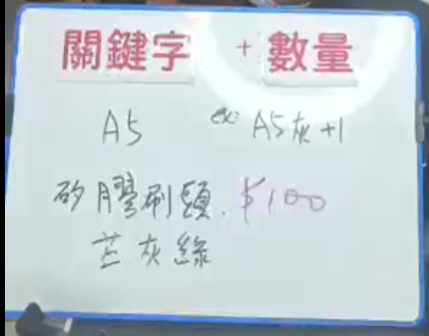 關鍵字 + 數量
A5 ex: A5灰+1
矽膠刷頭. $100
芒.灰.綠